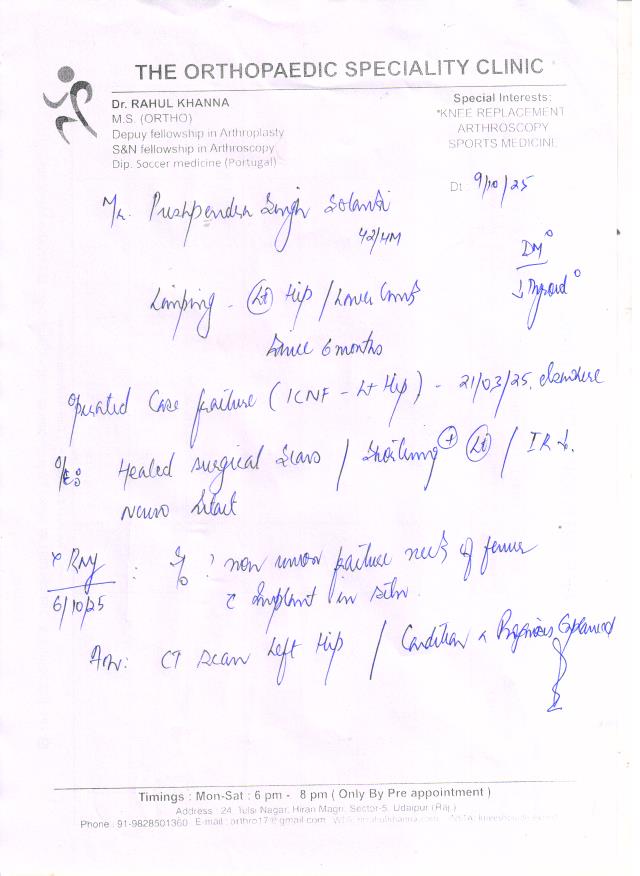 THE ORTHOPAEDIC SPECIALITY CLINIC
Dr. RAHUL KHANNA
M.S. (ORTHO)
Depuy fellowship in Arthroplasty
S&N fellowship in Arthroscopy
Dip. Soccer medicine (Portugal)
Special Interests:
*KNEE REPLACEMENT
ARTHROSCOPY
SPORTS MEDICINE
Dt : 9/10/25
Mr. Pushpendra Singh Solanki
42/M
DM°
↓ Thyroid °
Limping - (Lt) Hip / Lower Limb
Since 6 months
Operated Case fracture (ICNF - Lt Hip) - 21/03/25, elsewhere
O/E: Healed surgical Scars / Shortening + (Lt) / IR ↓.
Neuro Intact
X Ray : S/o ? non union fracture neck of femur
6/10/25
c Implant in situ.
Adv: CT Scan Left Hip / Condition & Prognosis Explained
Timings : Mon-Sat : 6 pm - 8 pm ( Only By Pre appointment )
Address : 24 Tulsi Nagar, Hiran Magri, Sector-5, Udaipur (Raj.)
Phone : 91-9828501360 E-mail : arthro17@gmail.com